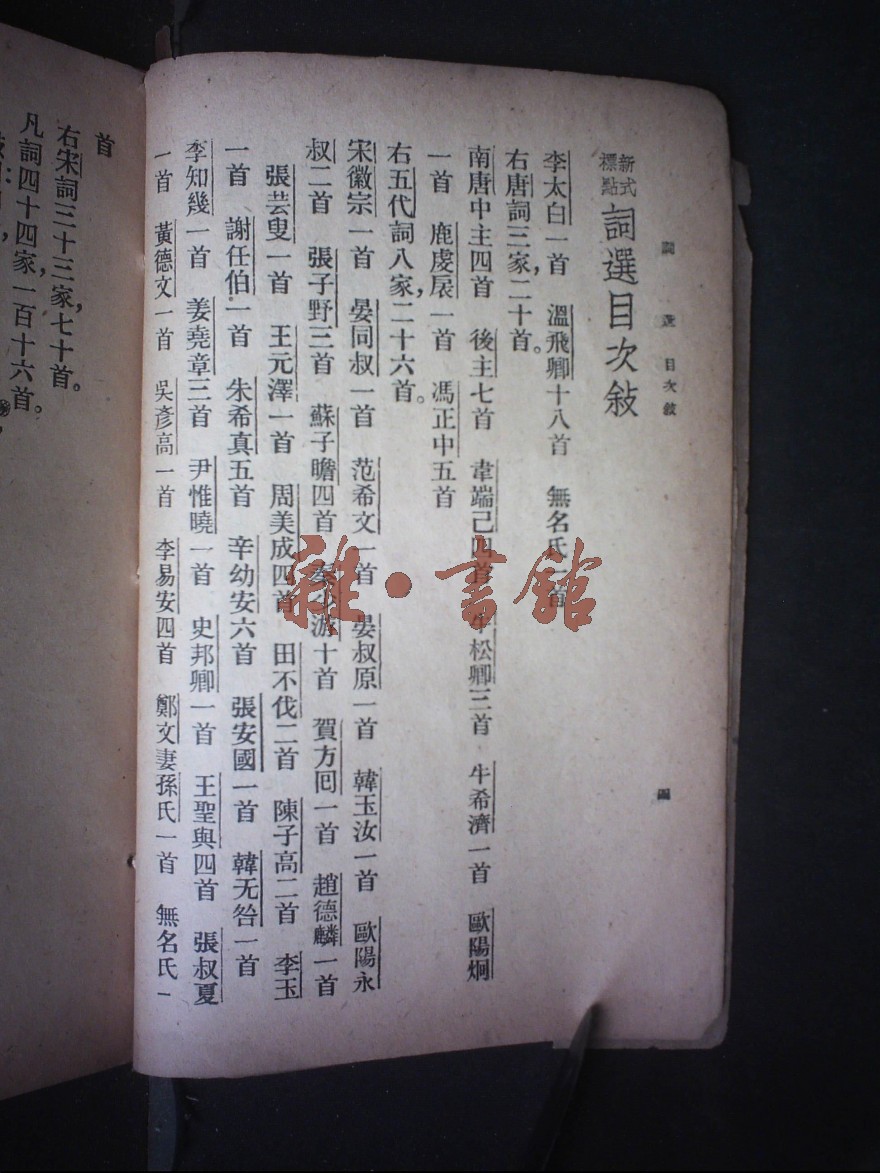 詞選目次敍
四
新式標點 詞選目次敍
李太白一首 溫飛卿十八首 無名氏一首
右唐詞三家，二十首。
南唐中主四首 後主七首 韋端己四首 牛松卿三首 牛希濟一首 歐陽炯
一首 鹿虔扆一首 馮正中五首
右五代詞八家，二十六首。
宋徽宗一首 晏同叔一首 范希文一首 晏叔原一首 韓玉汝一首 歐陽永
叔二首 張子野三首 蘇子瞻四首 秦少游十首 賀方囘一首 趙德麟一首
張芸叟一首 王元澤一首 周美成四首 田不伐二首 陳子高二首 李玉
一首 謝任伯一首 朱希真五首 辛幼安六首 張安國一首 韓无咎一首
李知幾一首 姜堯章三首 尹惟曉一首 史邦卿一首 王聖與四首 張叔夏
一首 黃德文一首 吳彥高一首 李易安四首 鄭文妻孫氏一首 無名氏一
首
右宋詞三十三家，七十首。
凡詞四十四家，一百十六首。
雜·書館